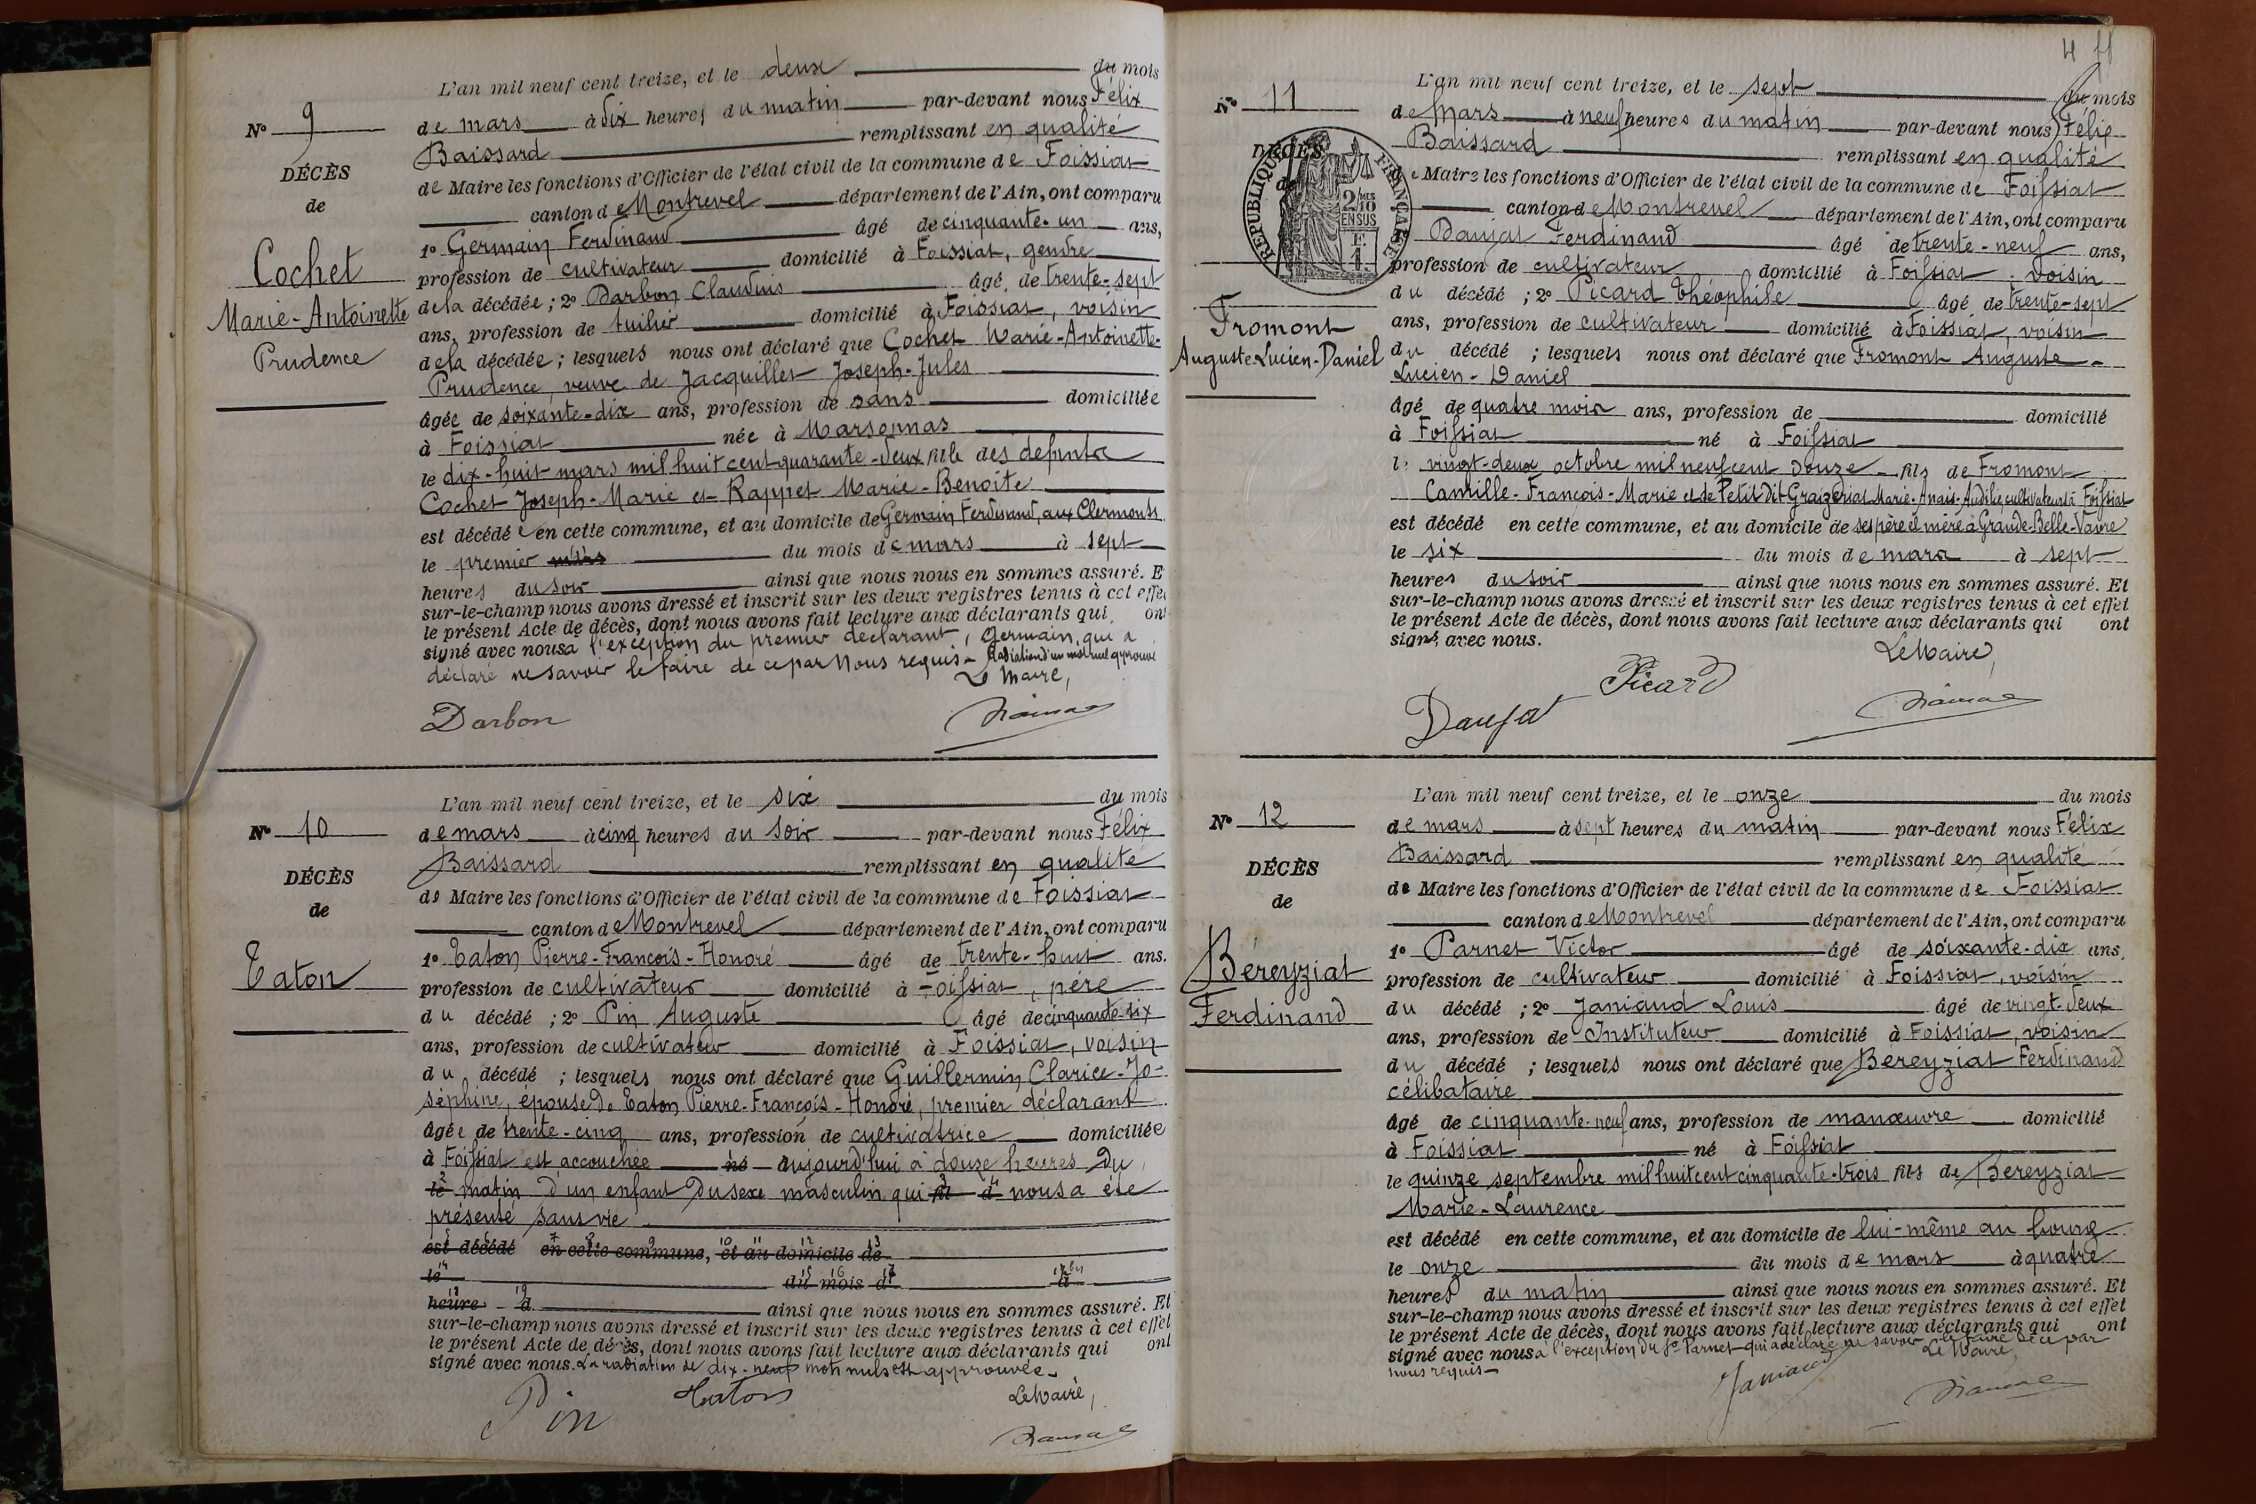 N° 9
DÉCÈS
de
Cochet
Marie-Antoinette
Prudence
L'an mil neuf cent treize, et le deux du mois
de mars à dix heures du matin par-devant nous Félix
Baissard remplissant en qualité
de Maire les fonctions d'Officier de l'état civil de la commune de Foissiat
canton de Montrevel département de l'Ain, ont comparu
1° Germain Ferdinand âgé de cinquante-un ans,
profession de cultivateur domicilié à Foissiat, gendre
de la décédée ; 2° Darbon Claudius âgé de trente-sept
ans, profession de tuilier domicilié à Foissiat, voisin
de la décédée ; lesquels nous ont déclaré que Cochet Marie-Antoinette-
Prudence, veuve de Jacquillet Joseph-Jules
âgée de soixante-dix ans, profession de sans domiciliée
à Foissiat née à Marsonnas
le dix-huit mars mil huit cent quarante-deux fille des defunts
Cochet Joseph-Marie et Rappet Marie-Benoite
est décédée en cette commune, et au domicile de Germain Ferdinand, aux Clermonts
le premier mars du mois de mars à sept
heures du soir ainsi que nous nous en sommes assuré. E
sur-le-champ nous avons dressé et inscrit sur les deux registres tenus à cet effet
le présent Acte de décès, dont nous avons fait lecture aux déclarants qui ont
signé avec nous à l'exception du premier déclarant, Germain, qui a
déclaré ne savoir le faire de ce par nous requis - Radiation d'un mot nul approuvé
Le Maire,
Darbon
N° 10
DÉCÈS
de
Taton
L'an mil neuf cent treize, et le six du mois
de mars à cinq heures du soir par-devant nous Félix
Baissard remplissant en qualité
de Maire les fonctions d'Officier de l'état civil de la commune de Foissiat
canton de Montrevel département de l'Ain, ont comparu
1° Taton Pierre-François-Honoré âgé de trente-huit ans.
profession de cultivateur domicilié à Foissiat, père
du décédé ; 2° Pin Auguste âgé de cinquante-six
ans, profession de cultivateur domicilié à Foissiat, voisin
du décédé ; lesquels nous ont déclaré que Guillermin Clarice-Jo-
séphine, épouse de Taton Pierre-François-Honoré, premier déclarant
âgée de trente-cinq ans, profession de cultivatrice domiciliée
à Foissiat est accouchée né aujourd'hui à douze heures du
le matin d'un enfant du sexe masculin qui fil d nous a été
présenté sans vie
est décédé en cette commune, et au domicile de
le du mois d à
heure d ainsi que nous nous en sommes assuré. Et
sur-le-champ nous avons dressé et inscrit sur les deux registres tenus à cet effet
le présent Acte de décès, dont nous avons fait lecture aux déclarants qui ont
signé avec nous. La radiation de dix-neuf mots nuls est approuvée.
Pin Taton Le Maire,
4
N° 11
DÉCÈS
de
RÉPUBLIQUE FRANÇAISE
2/10 EN SUS
Fromont
Auguste-Lucien-Daniel
L'an mil neuf cent treize, et le sept du mois
de Mars à neuf heures du matin par-devant nous Félix
Baissard remplissant en qualité
de Maire les fonctions d'Officier de l'état civil de la commune de Foissiat
canton de Montrevel département de l'Ain, ont comparu
Daujat Ferdinand âgé de trente-neuf ans,
profession de cultivateur domicilié à Foissiat, voisin
du décédé ; 2° Picard Théophile âgé de trente-sept
ans, profession de cultivateur domicilié à Foissiat, voisin
du décédé ; lesquels nous ont déclaré que Fromont Auguste-
Lucien-Daniel
âgé de quatre mois ans, profession de domicilié
à Foissiat né à Foissiat
le vingt-deux octobre mil neuf cent douze fils de Fromont
Camille-François-Marie et de Petit dit Graizeriat Marie-Anaïs-Audélie, cultivateurs à Foissiat
est décédé en cette commune, et au domicile de ses père et mère à Grande-Belle-Vavre
le six du mois de mars à sept
heures du soir ainsi que nous nous en sommes assuré. Et
sur-le-champ nous avons dressé et inscrit sur les deux registres tenus à cet effet
le présent Acte de décès, dont nous avons fait lecture aux déclarants qui ont
signé avec nous.
Le Maire,
Picard
Daujat
N° 12
DÉCÈS
de
Béreyziat
Ferdinand
L'an mil neuf cent treize, et le onze du mois
de mars à sept heures du matin par-devant nous Félix
Baissard remplissant en qualité
de Maire les fonctions d'Officier de l'état civil de la commune de Foissiat
canton de Montrevel département de l'Ain, ont comparu
1° Parnet Victor âgé de soixante-dix ans,
profession de cultivateur domicilié à Foissiat, voisin
du décédé ; 2° Janiaud Louis âgé de vingt-deux
ans, profession de Instituteur domicilié à Foissiat, voisin
du décédé ; lesquels nous ont déclaré que Béreyziat Ferdinand
célibataire
âgé de cinquante-neuf ans, profession de manœuvre domicilié
à Foissiat né à Foissiat
le quinze septembre mil huit cent cinquante-trois fils de Béreyziat
Marie-Laurence
est décédé en cette commune, et au domicile de lui-même au bourg
le onze du mois de mars à quatre
heures du matin ainsi que nous nous en sommes assuré. Et
sur-le-champ nous avons dressé et inscrit sur les deux registres tenus à cet effet
le présent Acte de décès, dont nous avons fait lecture aux déclarants qui ont
signé avec nous à l'exception du sr Parnet qui a déclaré ne savoir le faire de ce par
nous requis
Le Maire,
Janiaud